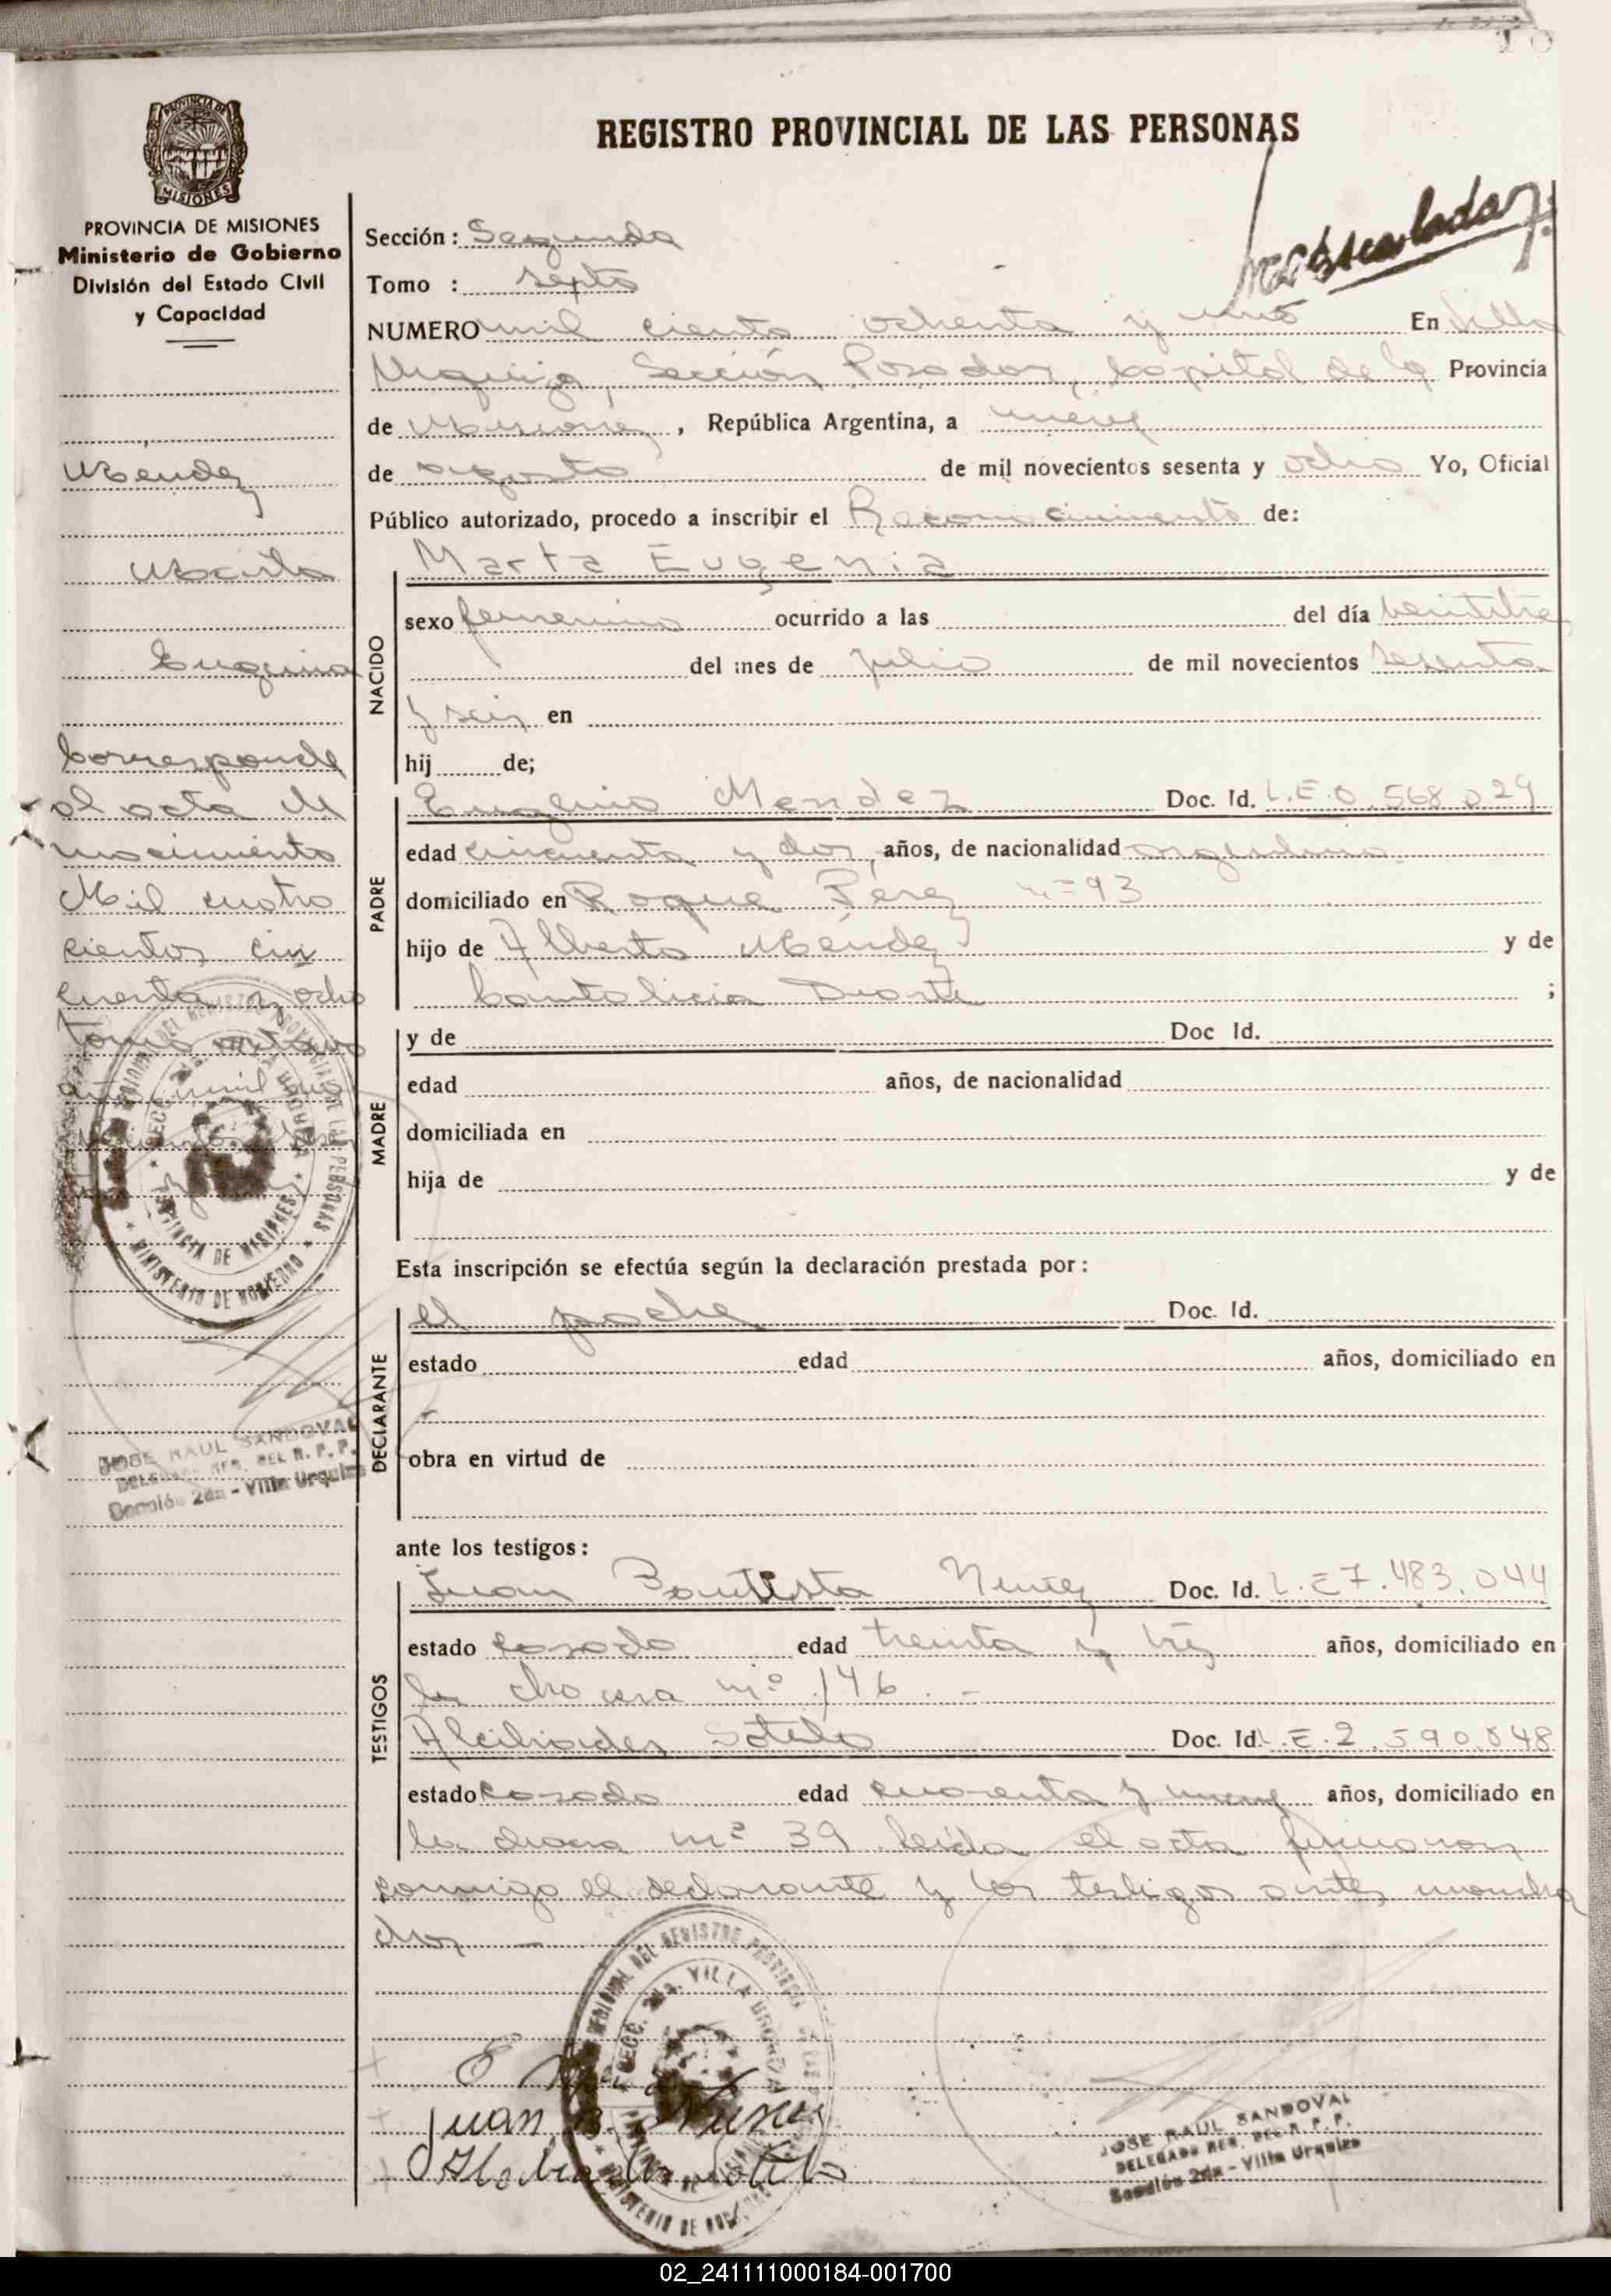 REGISTRO PROVINCIAL DE LAS PERSONAS
PROVINCIA DE MISIONES
Ministerio de Gobierno
División del Estado Civil
y Capacidad
Méndez
Marta
Eugenia
Corresponde
al acta de
nacimiento
Mil cuatro
cientos cin
cuenta y ocho
tomo octavo
año mil
JOSE RAUL SANDOVAL
DELEGADO REG. DEL R. P. P.
Sección 2da - Villa Urquiza
Sección: Segunda
Tomo : septo
NUMERO mil ciento ochenta y uno En Villa
Urquiza, Sección Posadas, Capital de la Provincia
de Misiones, República Argentina, a nueve
de agosto de mil novecientos sesenta y ocho Yo, Oficial
Público autorizado, procedo a inscribir el Reconocimiento de:
NACIDO
Marta Eugenia
sexo femenino ocurrido a las del día veintitre
del mes de julio de mil novecientos sesenta
y seis en
hij de;
PADRE
Eugenio Mendez Doc. Id. L.E.0.568.029
edad cincuenta y dos, años, de nacionalidad argentino
domiciliado en Roque Pérez n=93
hijo de Alberto Méndez y de
Cantalicia Duarte ;
MADRE
y de Doc Id.
edad años, de nacionalidad
domiciliada en
hija de y de
Esta inscripción se efectúa según la declaración prestada por:
DECLARANTE
el padre Doc. Id.
estado edad años, domiciliado en
obra en virtud de
ante los testigos:
TESTIGOS
Juan Bautista Nuñez Doc. Id. L.E 7.483.044
estado casado edad treinta y tres años, domiciliado en
la chacra nº 146. -
Alcibiades Sotelo Doc. Id. L.E.2.590.548
estado casado edad cuarenta y nueve años, domiciliado en
la chacra nº 39 leída el acta firmaron
conmigo el declarante y los testigos antes mencha
dos —
Juan B. Nuñez
Sotelo
JOSE RAUL SANDOVAL
DELEGADO REG. DEL R. P. P.
Sección 2da - Villa Urquiza
02_241111000184-001700